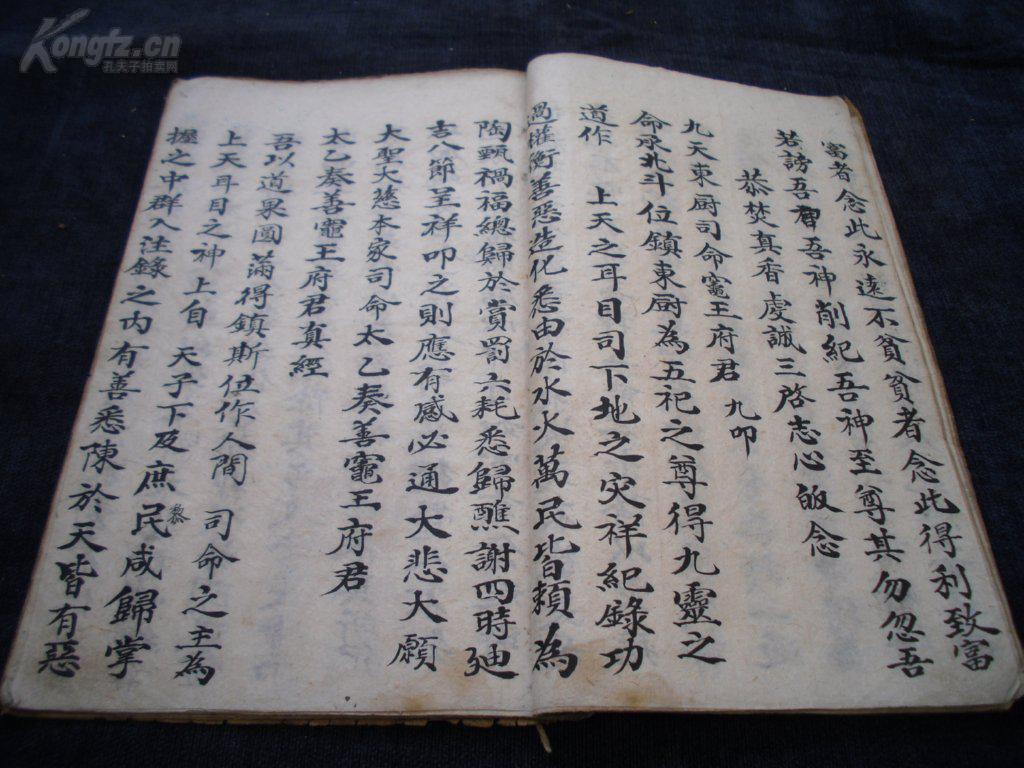 Kongfz.cn
孔夫子拍卖网
富者念此永遠不貧貧者念此得利致富
若謗吾 吾神削紀吾神至尊其勿忽吾
恭焚真香虔誠三啓志心皈念
九天東厨司命竈王府君 九叩
命承北斗位鎮東厨為五祀之尊得九靈之
道作 上天之耳目司下地之灾祥紀錄功
過權衡善惡造化悉由於水火萬民皆賴為
陶甄禍福總歸於賞罰六耗悉歸醮謝四時迪
吉八節呈祥叩之則應有感必通大悲大願
大聖大慈本家司命太乙奏善竈王府君
太乙奏善竈王府君真經
吾以道果圓滿得鎮斯位作人間 司命之主為
上天耳目之神上自 天子下及庶民黎咸歸掌
握之中群入注錄之內有善悉陳於天皆有惡